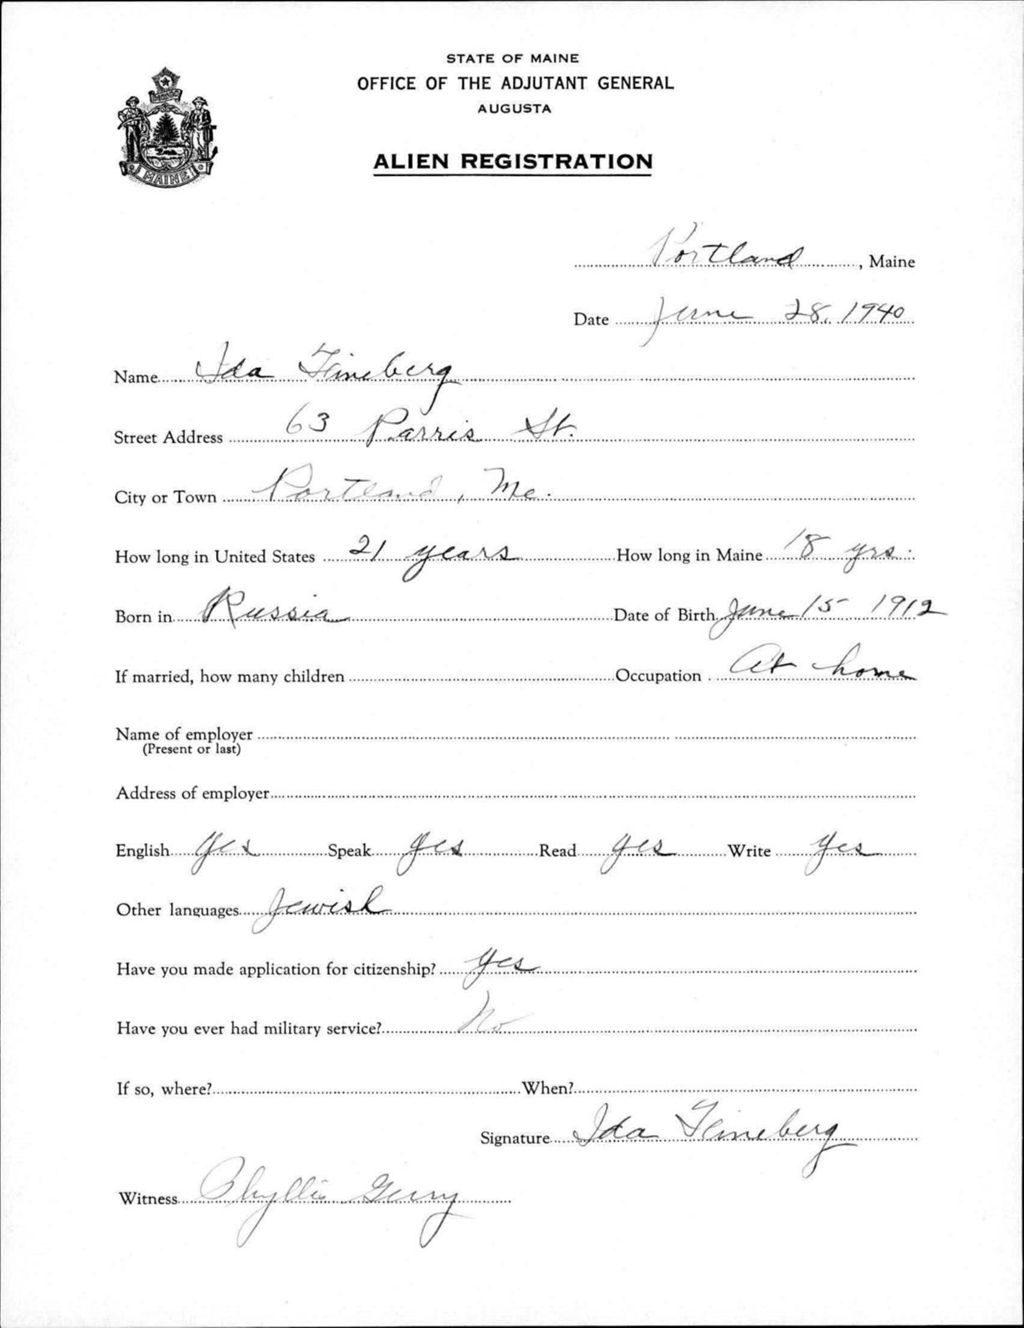 STATE OF MAINE
OFFICE OF THE ADJUTANT GENERAL
AUGUSTA
ALIEN REGISTRATION
MAINE
Portland, Maine
Date June 28, 1940
Name Ida Fineberg
Street Address 63 Parris St.
City or Town Portland, Me.
How long in United States 21 years How long in Maine 18 yrs.
Born in Russia Date of Birth June 15 1912
If married, how many children Occupation At home
Name of employer
(Present or last)
Address of employer
English Yes Speak Yes Read Yes Write Yes
Other languages Jewish
Have you made application for citizenship? Yes
Have you ever had military service? No
If so, where? When?
Signature Ida Fineberg
Witness Phyllis Gerry